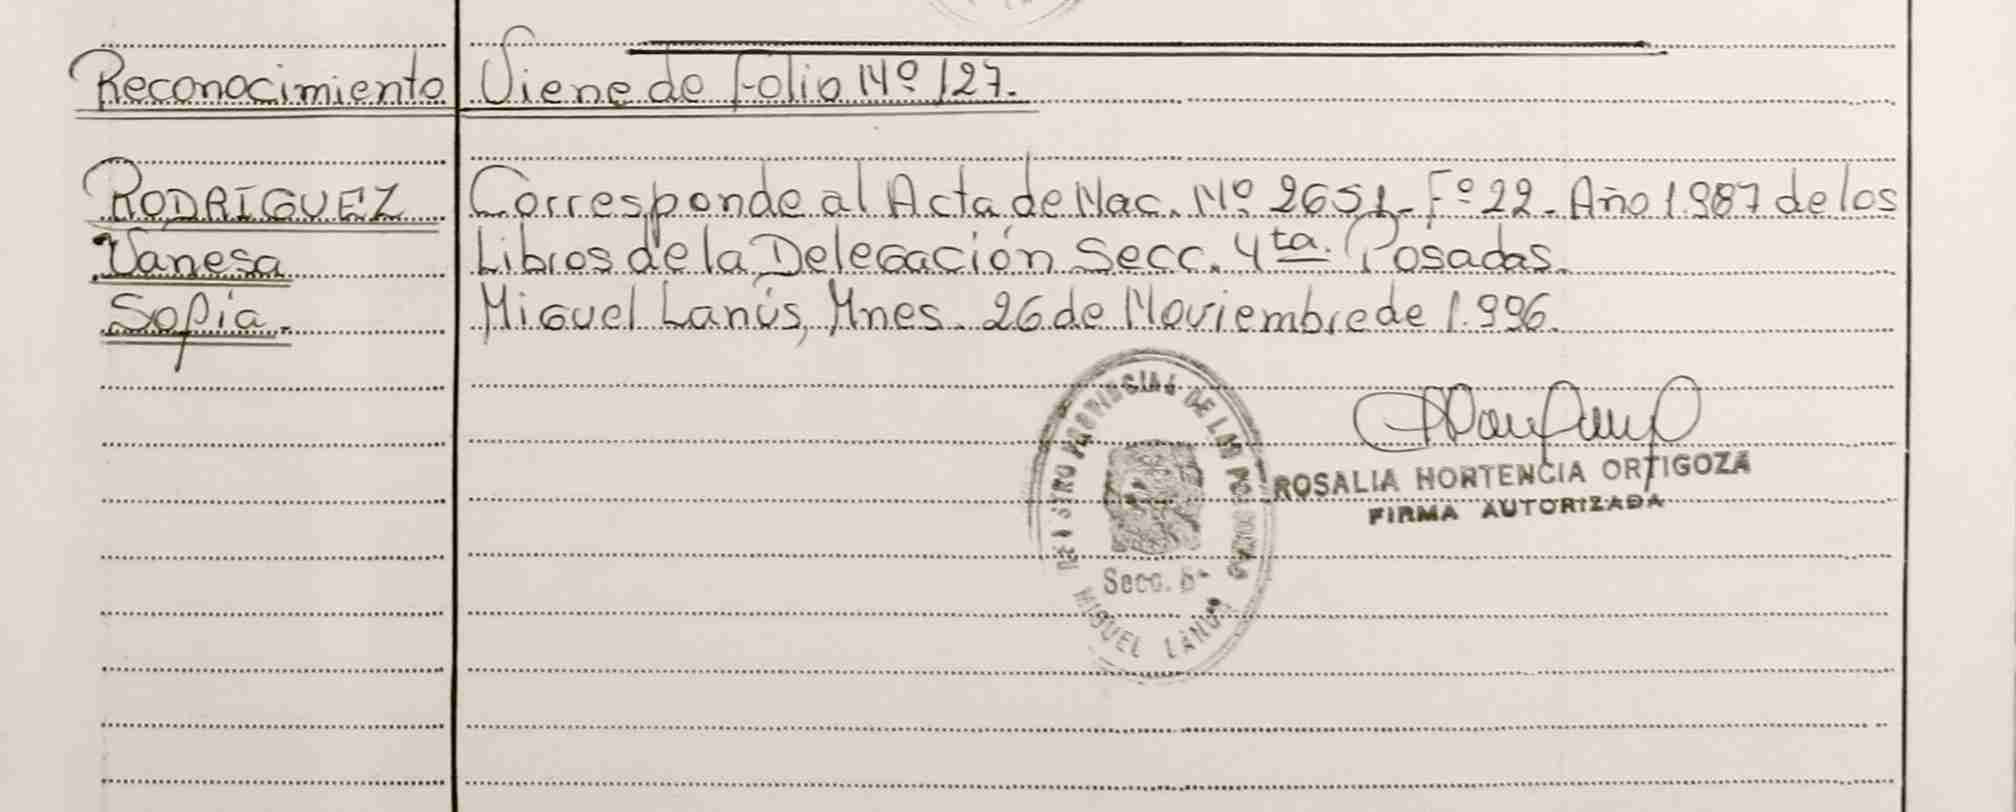 Reconocimiento Viene de Folio Nº 127.
RODRÍGUEZ Corresponde al Acta de Nac. Nº 2651- Fº 22- Año 1.987 de los
Vanesa Libros de la Delegación Secc. 4ta. Posadas.
Sofía. Miguel Lanús, Mnes. 26 de Noviembre de 1.996.
REGISTRO PROVINCIAL DE LAS PERSONAS
Secc.
MIGUEL LANUS
ROSALIA HORTENCIA ORTIGOZA
FIRMA AUTORIZADA